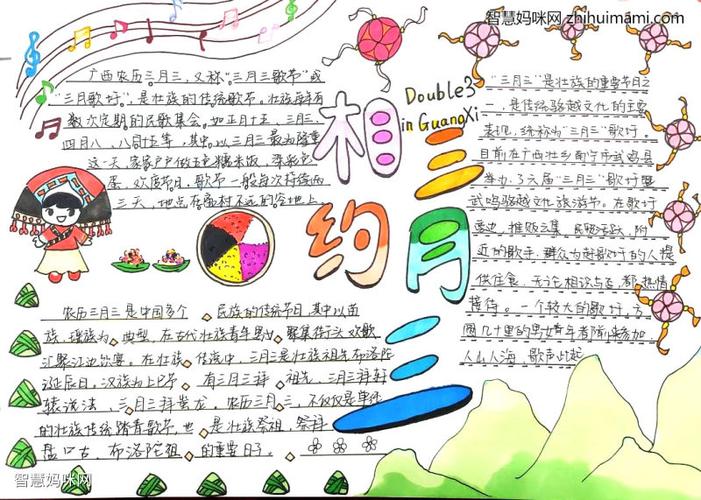 智慧妈咪网 zhihuimami.com
相约三月三
Double3
in GuangXi
广西农历三月三,又称"三月三歌节"或
"三月歌圩",是壮族的传统歌节。壮族每有
数次定期的民歌集会,如正月十五、三月三、
四月八、八月十五等,其中以三月三最为隆重
这一天,家家户户做五色糯米饭,染彩色
蛋,欢度节日,歌节一般每次持续两
三天,地点在离村不远的空地上
"三月三"是壮族的重要节日之
一,是传统骆越文化的主要
表现,统称为"三月三"歌圩,
目前在广西壮乡南宁市武鸣县
举办了六届"三月三"歌圩暨
武鸣骆越文化旅游节。在歌圩
旁边,摊贩云集,民贸活跃,附
近的歌手、群众为赶歌圩的人提
供住食,无论相识与否,都热情
接待。一个较大的歌圩,方
圆几十里的男女青年都前来参加
人山人海,歌声此起
农历三月三是中国多个 民族的传统节日,其中以苗
族、瑶族为 典型,在古代壮族青年男女 聚集街头欢歌
汇聚江边饮宴。在壮族 传流中,三月三是壮族祖先布洛陀
诞辰日,汉族为上巳节 有三月三拜 祖先,三月三拜轩
辕说法、三月三拜 龙,农历三月三,不仅仅是单纯
的壮族传统踏青歌节,也 是壮族祭祖,祭拜
盘 古、布洛陀祖 的重要日子。
智慧妈咪网